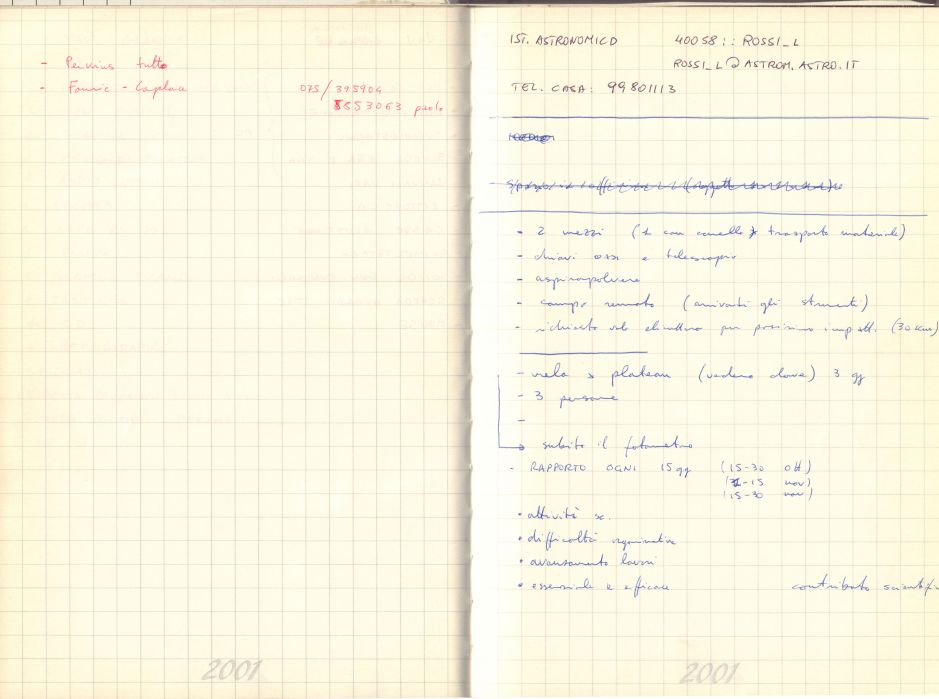 - Perkins tutto
- Fourie - Laplace
075/395904
5553063 paolo
2001
IST. ASTRONOMICO 40058 :: ROSSI_L
ROSSI_L@ASTROM.ASTRO.IT
TEL. CASA: 99801113
- 2 mezzi ( con carrello x trasporto materiale)
- chiavi e telescopio
- aspirapolvere
- campo remoto (arrivati gli strumenti)
- richiesta volo per prossimo (30 km)
- vela x plateau (vedere dove) 3 gg
- 3 persone
-
→ subito il fotometro
- RAPPORTO OGNI 15 gg (15-30 ott)
(1-15 nov)
(15-30 nov)
• attività sc.
• difficoltà organizzative
• avanzamento lavori
• essenziale e efficace contributo scientifi
2001